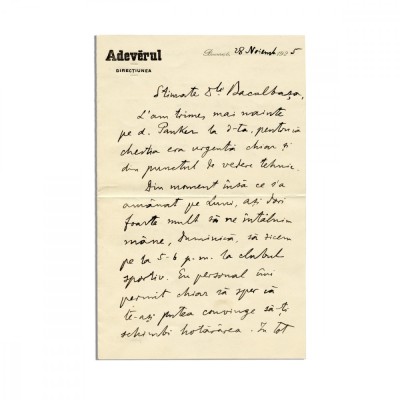 Adevĕrul
DIRECȚIUNEA
București 28 Noiemb 1905
Stimate Dle Bacalbașa,
L'am trimes mai nainte
pe d. Pauker la d-ta, pentrucă
chestia era urgentă chiar și
din punctul de vedere technic.
Din moment însă ce s'a
amânat pe Luni, ași dori
foarte mult să ne întâlnim
mâne, Duminică, să zicem
pe la 5-6 p.m. la clubul
sportiv. Eu personal îmi
permit chiar să sper că
te-ași putea convinge să-ți
schimbi hotărârea. In tot